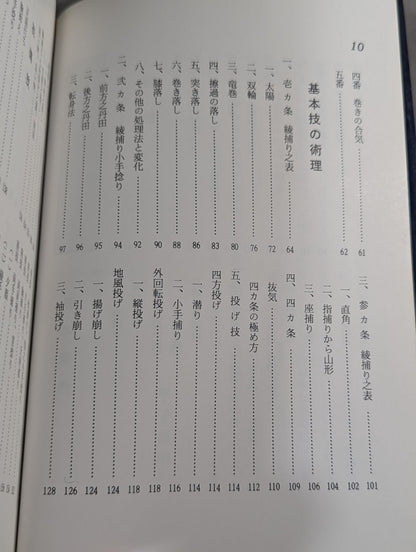 10
四番 巻きの合気 61
五番 62
基本技の術理
一、壱カ条 綾捕り之表 64
一、太陽 72
二、双輪 76
三、竜巻 80
四、擦過の落し 83
五、突き落し 86
六、巻き落し 88
七、膝落し 90
八、その他の処理法と変化 92
二、弐カ条 綾捕り小手捻り 94
一、前方之丹田 95
二、後方之丹田 96
三、転身法 97
三、参カ条 綾捕り之表 101
一、直角 102
二、指捕りから山形 104
三、座捕り 106
四、四カ条 109
抜気 110
四カ条の極め方 114
五、投げ技 114
四方投げ 114
一、潜り 114
二、小手捕り 116
外回転投げ 118
一、縦投げ 118
地風投げ 124
一、揚げ崩し 124
二、引き崩し 126
三、袖投げ 128